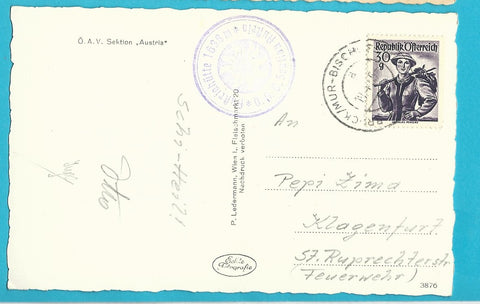 Ö.A.V. Sektion „Austria"
Republik Österreich
30
g
BRUCK/MUR-BISCH
An
Pepi Zima
Klagenfurt
St. Ruprechterstr
(Feuerwehr)
Schi-Heil!
Otto
P. Ledermann, Wien I., Fleischmarkt 20
Nachdruck verboten
Echte
Fotografie
3876